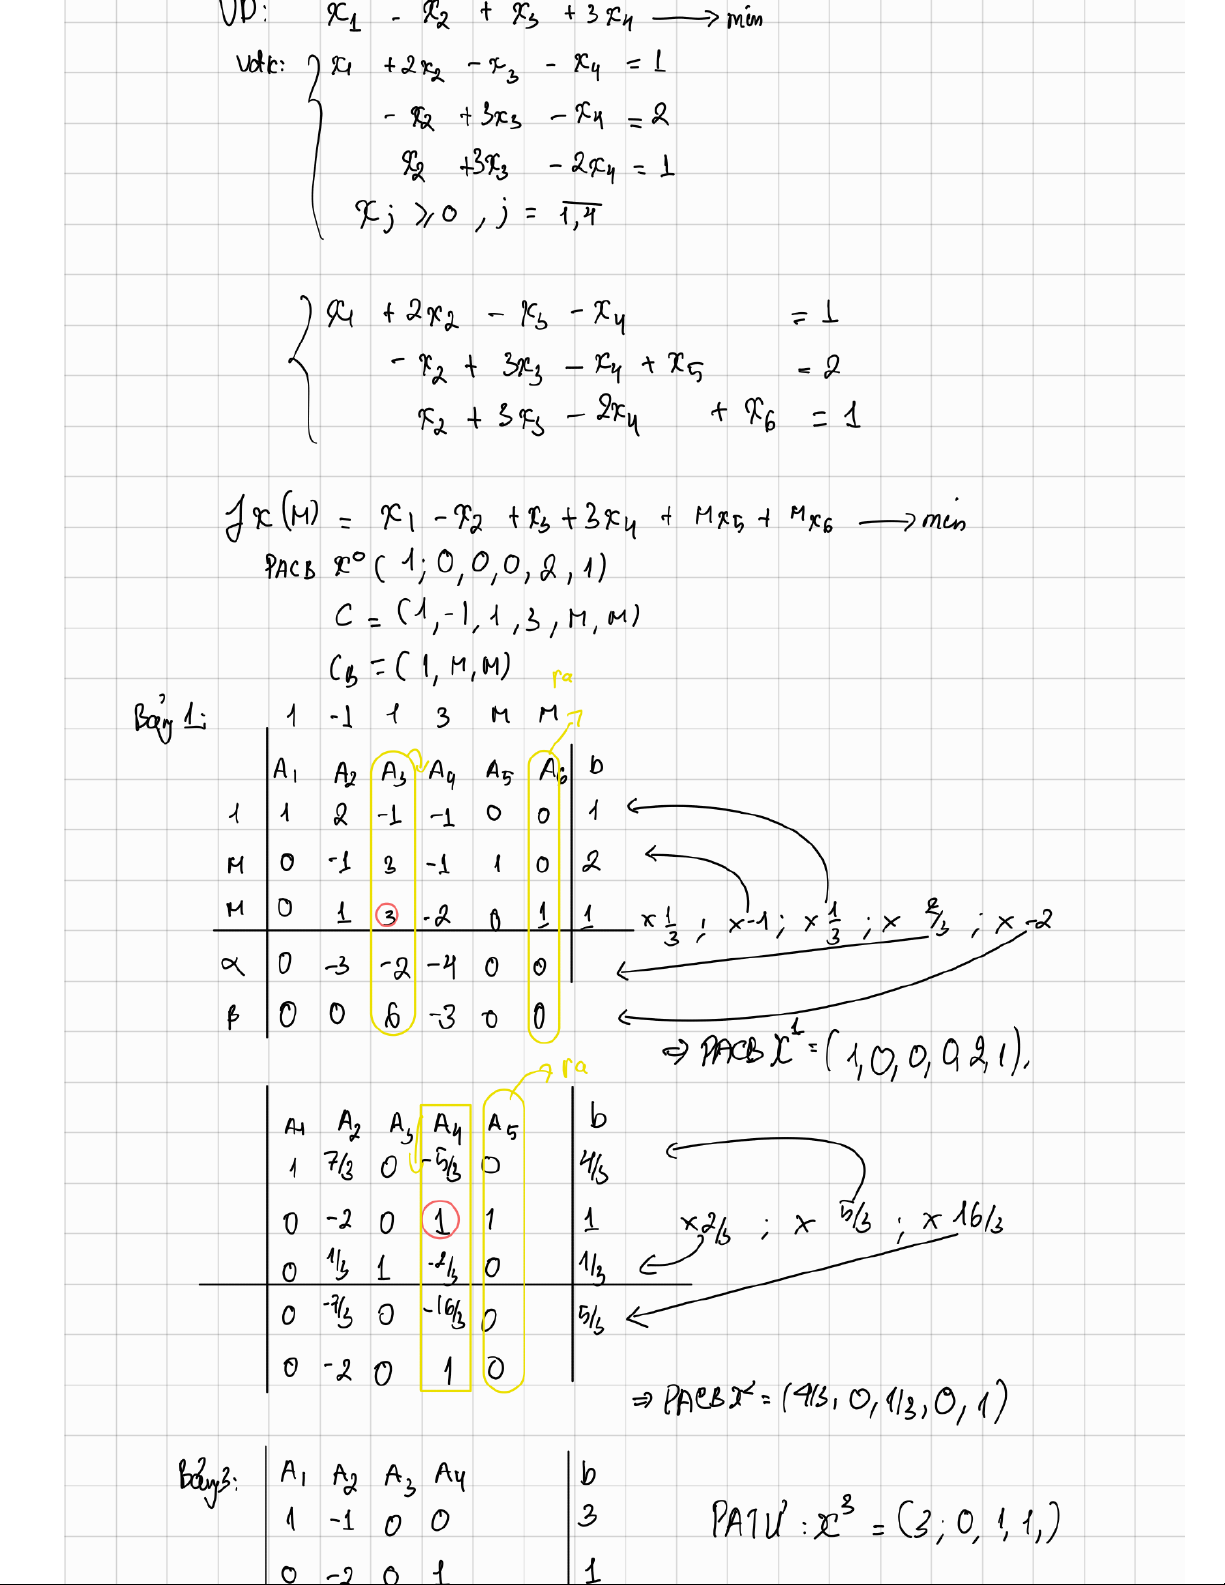 VD: x₁ - x₂ + x₃ + 3x₄ ⟶ min
Vdk: { x₁ + 2x₂ - x₃ - x₄ = 1
- x₂ + 3x₃ - x₄ = 2
x₂ + 3x₃ - 2x₄ = 1
xj ⩾ 0 , j = 1,4
{ x₁ + 2x₂ - x₃ - x₄ = 1
- x₂ + 3x₃ - x₄ + x₅ = 2
x₂ + 3x₃ - 2x₄ + x₆ = 1
fx(M) = x₁ - x₂ + x₃ + 3x₄ + Mx₅ + Mx₆ ⟶ min
PACB x⁰ ( 1; 0, 0, 0, 2, 1)
C = (1, -1, 1, 3, M, M)
C_B = ( 1, M, M)
ra
Bảng 1: 1 -1 1 3 M M
A₁ A₂ A₃ A₄ A₅ A₆ b
1 1 2 -1 -1 0 0 1
M 0 -1 3 -1 1 0 2
M 0 1 3 -2 0 1 1 x 1/3 ; x -1 ; x 1/3 ; x 2/3 ; x -2
α 0 -3 -2 -4 0 0
β 0 0 6 -3 0 0
⇒ PACB x¹ = ( 1, 0, 0, 0, 2, 1).
ra
A₁ A₂ A₃ A₄ A₅ b
1 7/3 0 -5/3 0 4/3
0 -2 0 1 1 1 x 2/3 ; x 5/3 ; x 16/3
0 1/3 1 -2/3 0 1/3
0 -7/3 0 -16/3 0 5/3
0 -2 0 1 0
⇒ PACB x² = (4/3, 0, 1/3, 0, 1)
Bảng 3: A₁ A₂ A₃ A₄ b
1 -1 0 0 3 PATƯ : x³ = (3; 0, 1, 1,)
0 -2 0 1 1